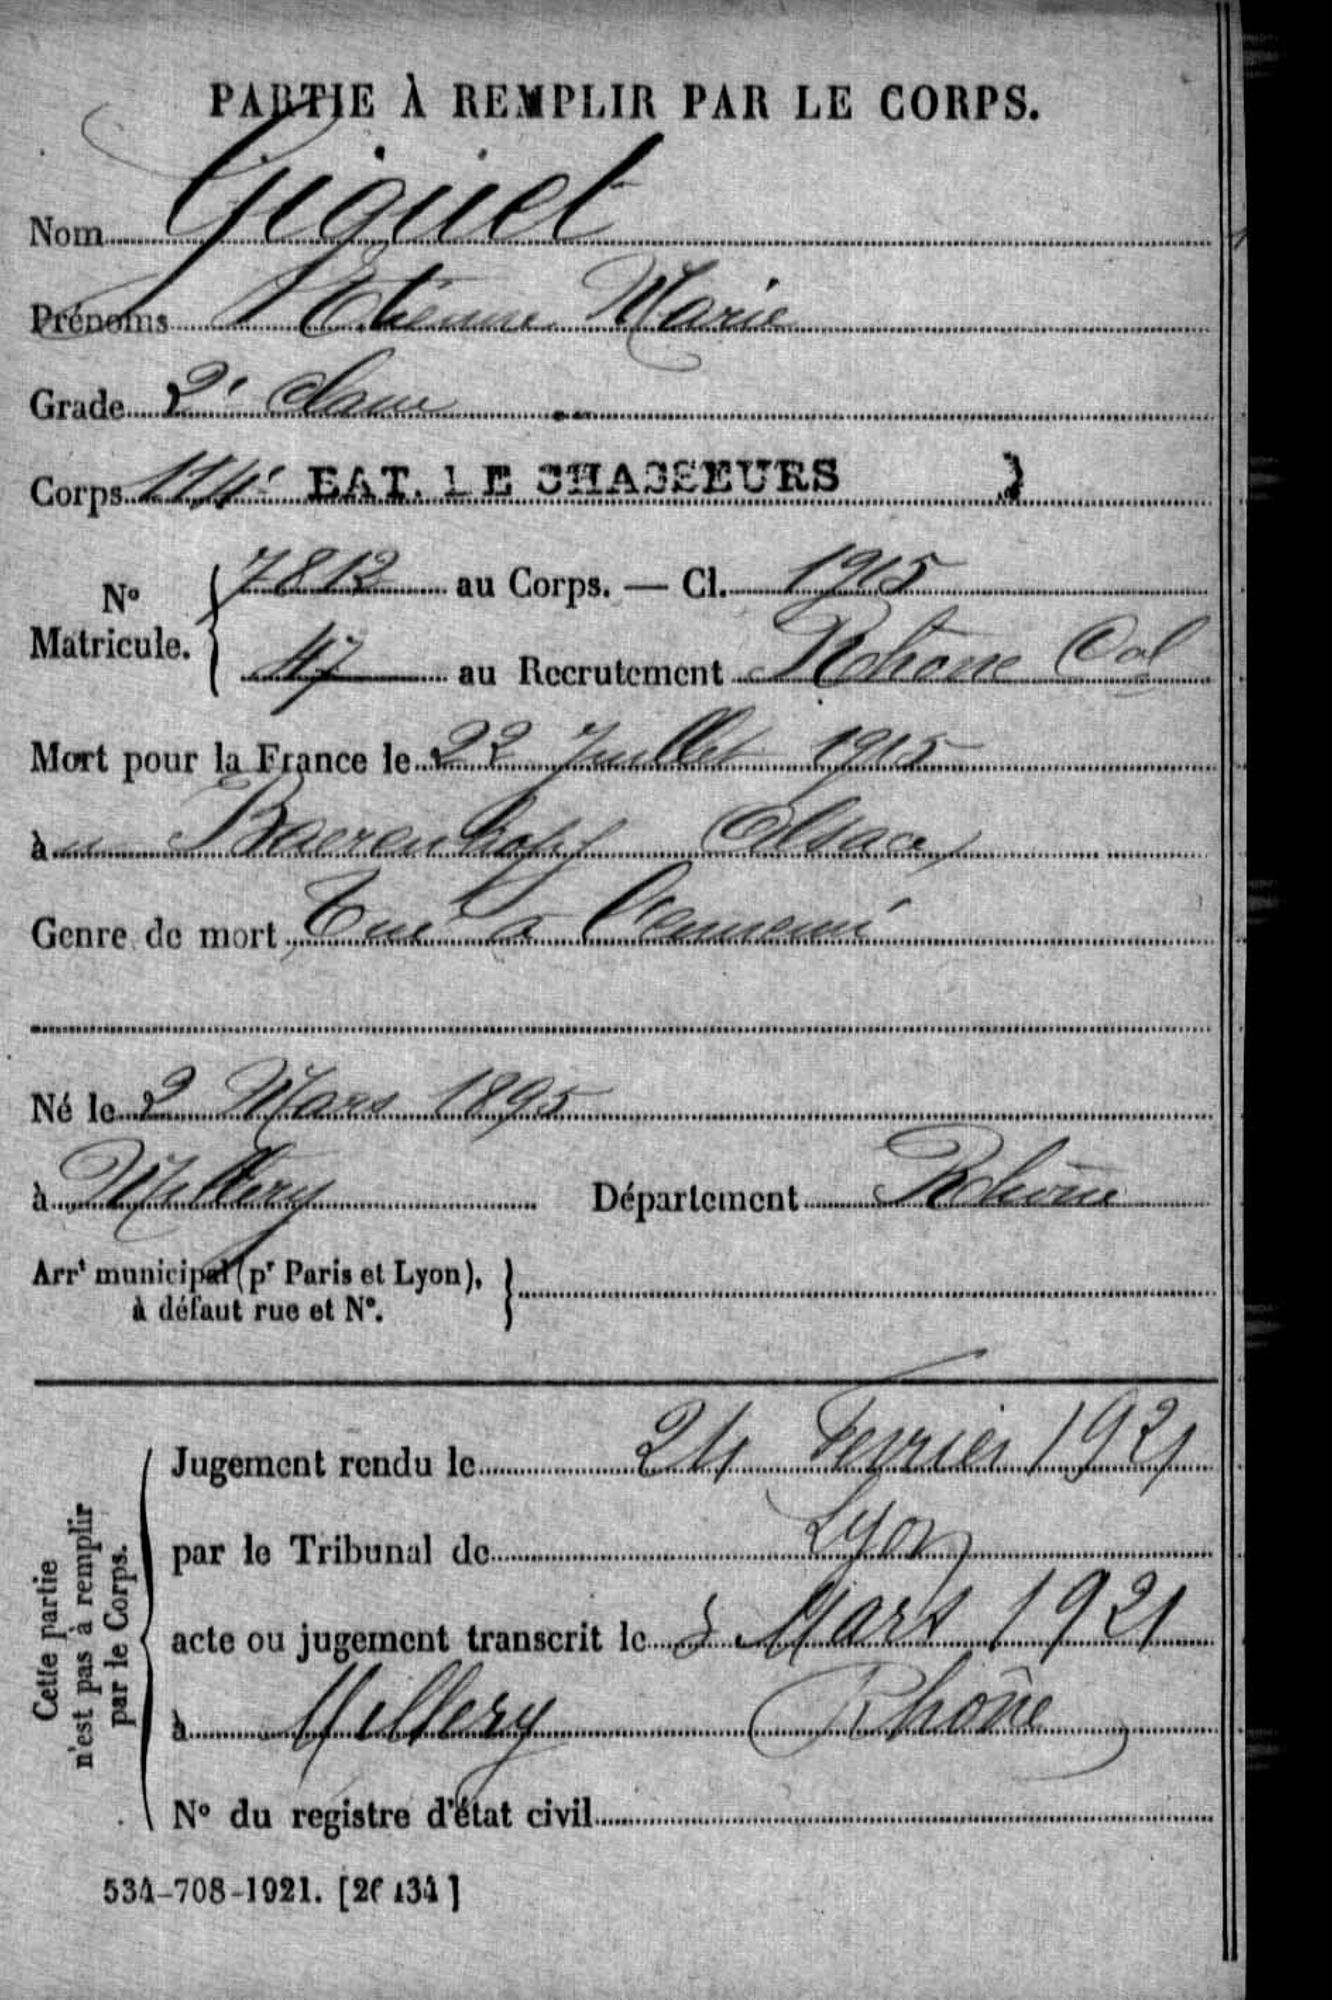 PARTIE À REMPLIR PAR LE CORPS.
Nom Giguet
Prénoms Etienne Marie
Grade 2e classe
Corps 114e BAT. DE CHASSEURS
No Matricule. 7812 au Corps. — Cl. 1915
47 au Recrutement Rhône Cal
Mort pour la France le 22 Juillet 1915
à Baerenkopf (Alsace)
Genre de mort Tué à l'ennemi
Né le 2 Mars 1895
à Millery Département Rhône
Arrt municipal (pr Paris et Lyon),
à défaut rue et No.
Jugement rendu le 24 Fevrier 1921
par le Tribunal de Lyon
acte ou jugement transcrit le 5 Mars 1921
à Millery (Rhône)
No du registre d'état civil
Cette partie
n'est pas à remplir
par le Corps.
534-708-1921. [26434]